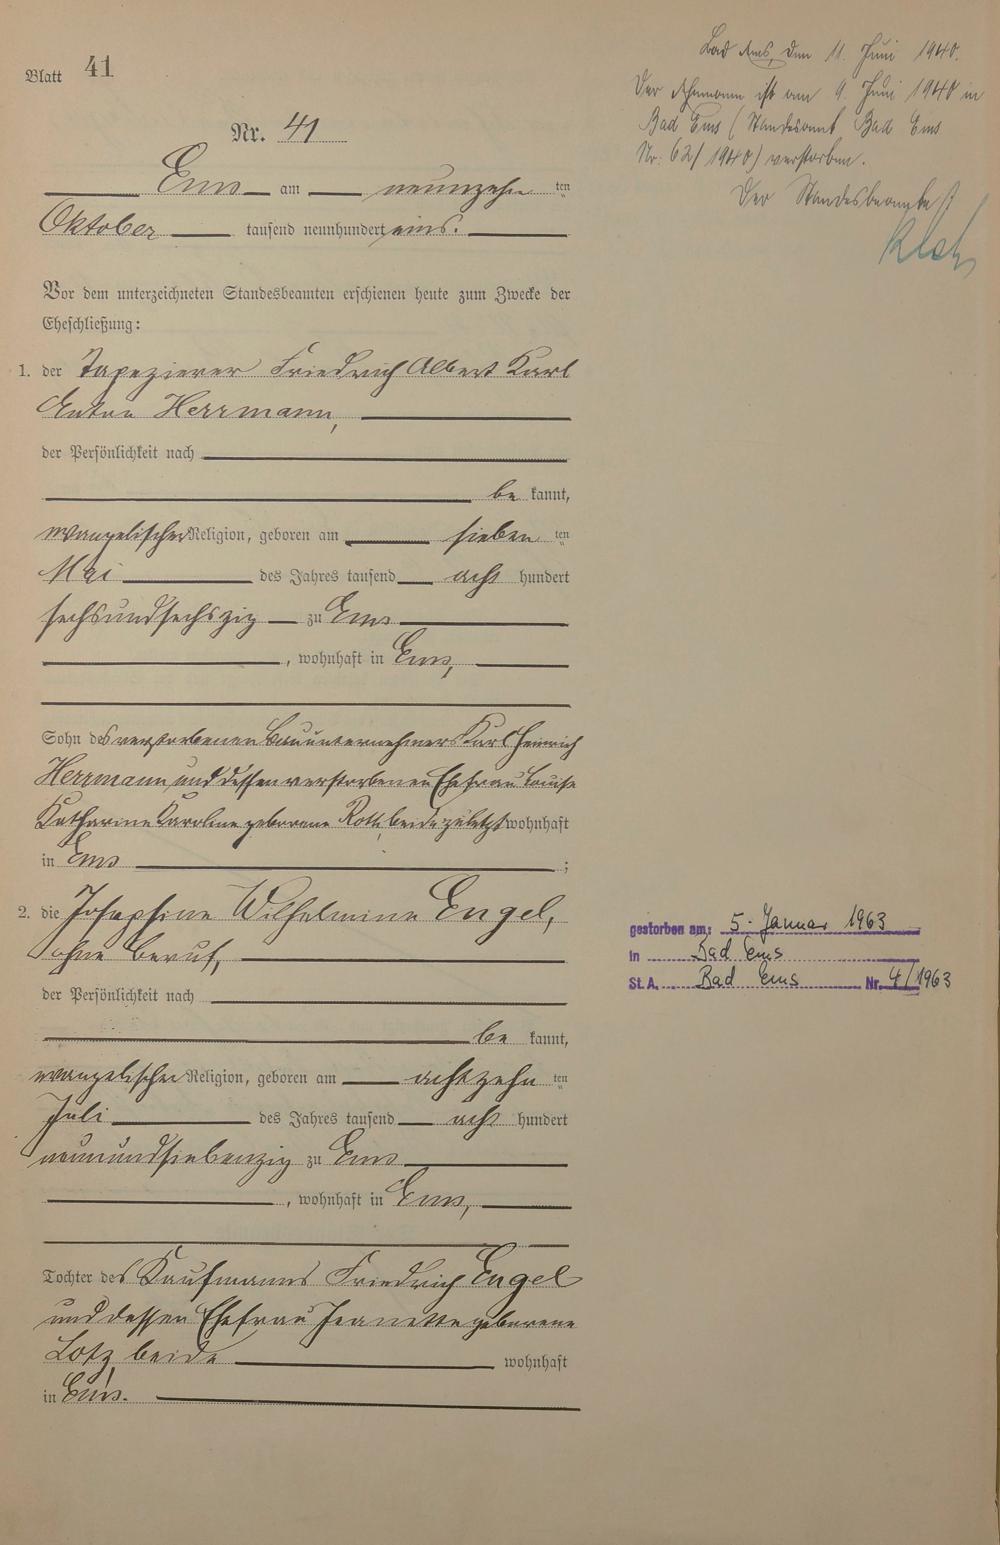 Blatt 41
Nr. 41
Ems am neunzehn ten
Oktober tausend neunhundert eins.
Vor dem unterzeichneten Standesbeamten erschienen heute zum Zwecke der
Eheschließung:
1. der Tapezierer Friedrich Albert Karl
Anton Herrmann,
der Persönlichkeit nach
be kannt,
evangelischer Religion, geboren am sieben ten
Mai des Jahres tausend acht hundert
sechsundsechszig zu Ems
, wohnhaft in Ems,
Sohn des verstorbenen Bauunternehmers Karl Heinrich
Herrmann und dessen verstorbenen Ehefrau Louise
Katharine Karoline geborene Roth, beide zuletzt wohnhaft
in Ems ;
2. die Josephine Wilhelmine Engel,
ohne Beruf,
der Persönlichkeit nach
be kannt,
evangelischer Religion, geboren am achtzehn ten
Juli des Jahres tausend acht hundert
neunundsiebenzig zu Ems
, wohnhaft in Ems,
Tochter des Kaufmanns Friedrich Engel
und dessen Ehefrau Jeanette geborene
Lotz beide wohnhaft
in Ems.
Bad Ems, den 11. Juni 1940.
Der Ehemann ist am 9. Juni 1940 in
Bad Ems (Standesamt Bad Ems
Nr. 62/1940) verstorben.
Der Standesbeamte
gestorben am: 5. Januar 1963
in Bad Ems
St. A. Bad Ems Nr. 4/1963